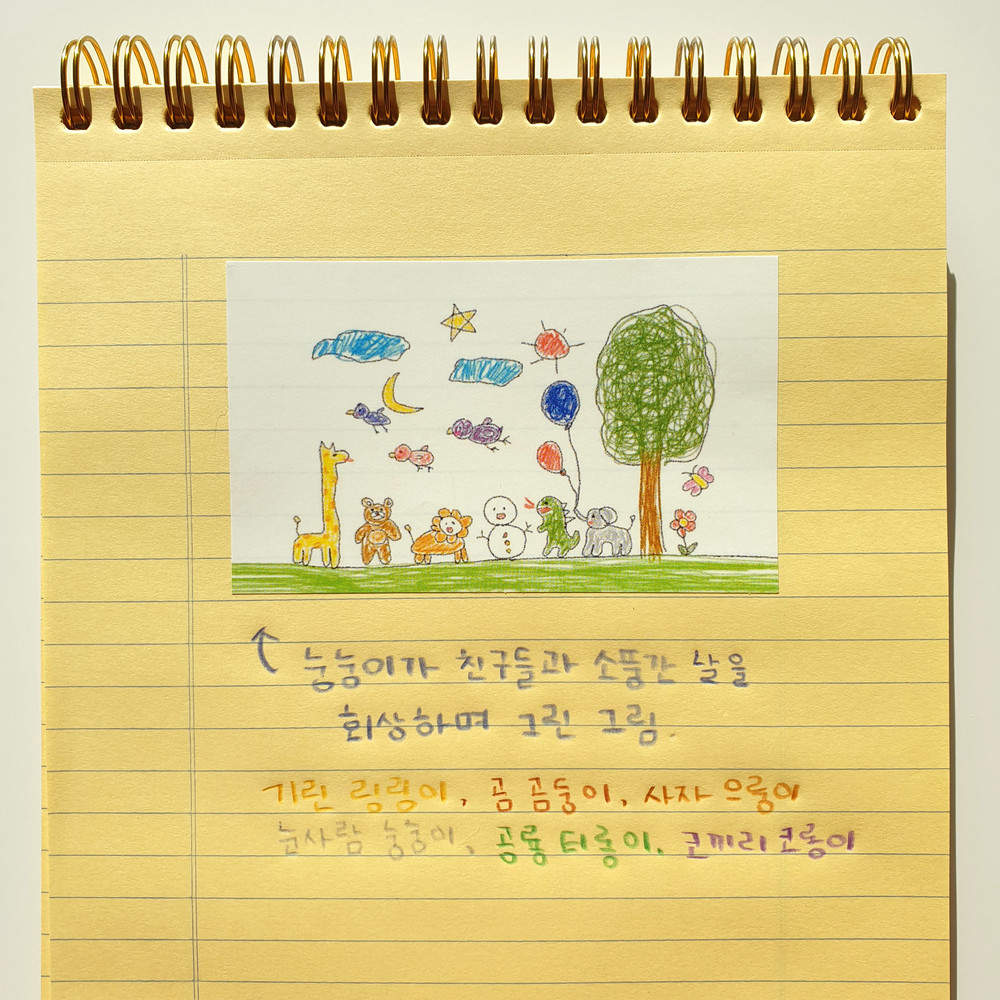 눙눙이가 친구들과 소풍간 날을
회상하며 그린 그림.
기린 림림이, 곰 곰둥이, 사자 으릉이
눈사람 눙눙이, 공룡 티롱이, 코끼리 코롱이